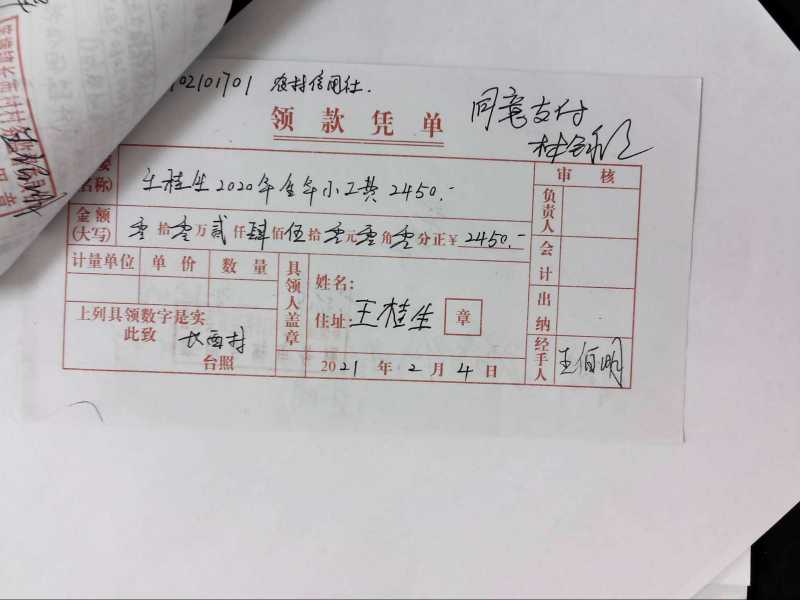 02101701 农村信用社.
领款凭单
同意支付
要
名称)
王桂生2020年全年小工费2450.-
审核
金额
(大写)
零拾零万贰仟肆佰伍拾零元零角零分正¥2450.-
负责人
计量单位 单价 数量
会计
上列具领数字是实
此致 长西村
台照
具领人盖章
姓名:
住址: 王桂生 章
2021年2月4日
出纳
经手人 王伯明